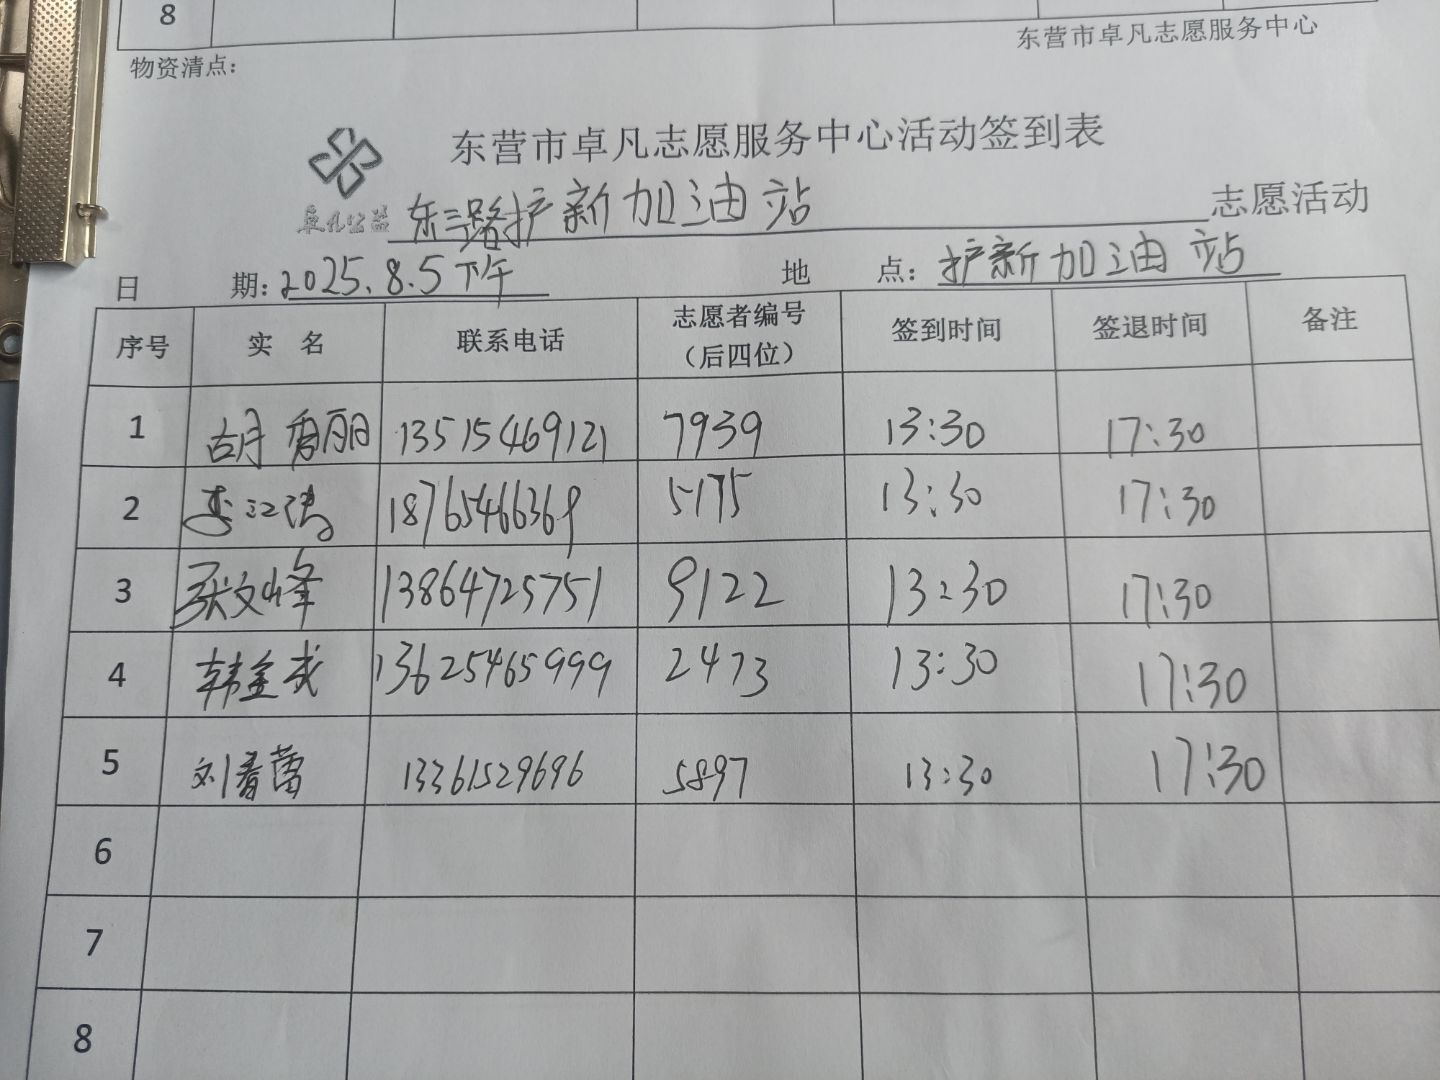 8
东营市卓凡志愿服务中心
物资清点：
东营市卓凡志愿服务中心活动签到表
卓凡公益 东三路护新加油站 志愿活动
日 期：2025.8.5下午 地 点：护新加油站
序号 实 名 联系电话 志愿者编号（后四位） 签到时间 签退时间 备注
1 胡秀丽 13515469121 7939 13:30 17:30
2 李江涛 18765466369 5175 13:30 17:30
3 张文峰 13864725751 9122 13:30 17:30
4 韩金武 13625465999 2473 13:30 17:30
5 刘春蕾 13361529696 5897 13:30 17:30
6
7
8